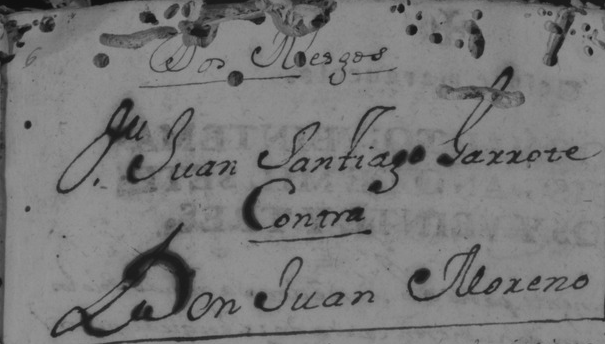 Dos Riesgos
Ju Juan Santiago Garrote
Contra
Don Juan Moreno